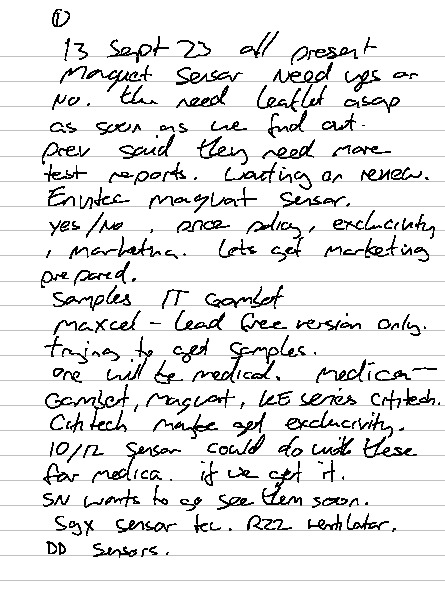 ①
13 Sept 23 all present
Maquet Sensor Need yes or
No. then need leaflet asap
as soon as we find out.
prev said they need more
test reports. waiting on review.
Envitec maquat sensor.
yes/No, price policy, exclucivity
, marketing. Lets get marketing
prepared.
Samples IT Gambet
maxcel - lead free version only.
trying to get samples.
one will be medical. medica—
Gambet, maquat, series Cititech.
Cititech maybe get exclucivity.
10/12 sensor could do with these
for medica. if we get it.
SN wants to go see them soon.
Sgx sensor tec. R22 ventilator.
DD sensors.